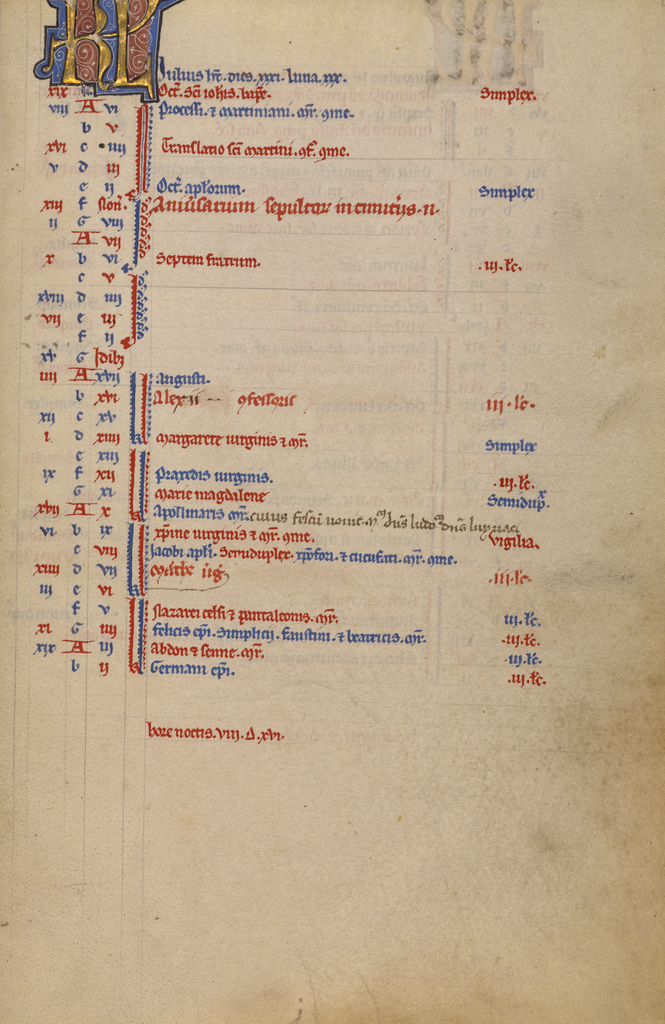 KL Iulius ht. dies. xxxi. luna. xxx.
xix Oct. sci iohis. bapt. Simplex.
viii A vi Processi. et martiniani. mr. 9me.
b v
xvi c iiii Translatio sci martini. 9f. 9me.
v d iii
e ii Oct. aplorum. Simplex
xiii f Non. Aniusarium sepultor in cimitiis. n.
ii G viii
A vii
x b vi Septem fratrum. .iii. lc.
c v
xviii d iiii
vii e iii
f ii
xv G Idibz
iiii A xvii augusti.
b xvi Alexii 9fessoris iii. lc.
xii c xv
i. d xiiii Margarete uirginis et mr. Simplex
e xiii
ix f xii Praxedis uirginis. .iii. lc.
G xi Marie magdalene Semidupx.
xvii A x Apollinaris mr. cuius
vi b ix xpine uirginis et mr. 9me. Vigilia.
c viii Iacobi apli. Semiduplex. xpofori. et cucufati. mr. 9me.
xiiii d vii Marthe uig .iii. lc.
iii e vi
f v Nazarei celsi et pantaleonis. mr. iii. lc.
xi G iiii felicis epi. Simplicii. faustini. et beatricis. mr. .iii. lc.
xix A iii Abdon et senne. mr. .iii. lc.
b ii Germani epi. .iii. lc.
hore noctis. viii. d. xvi.